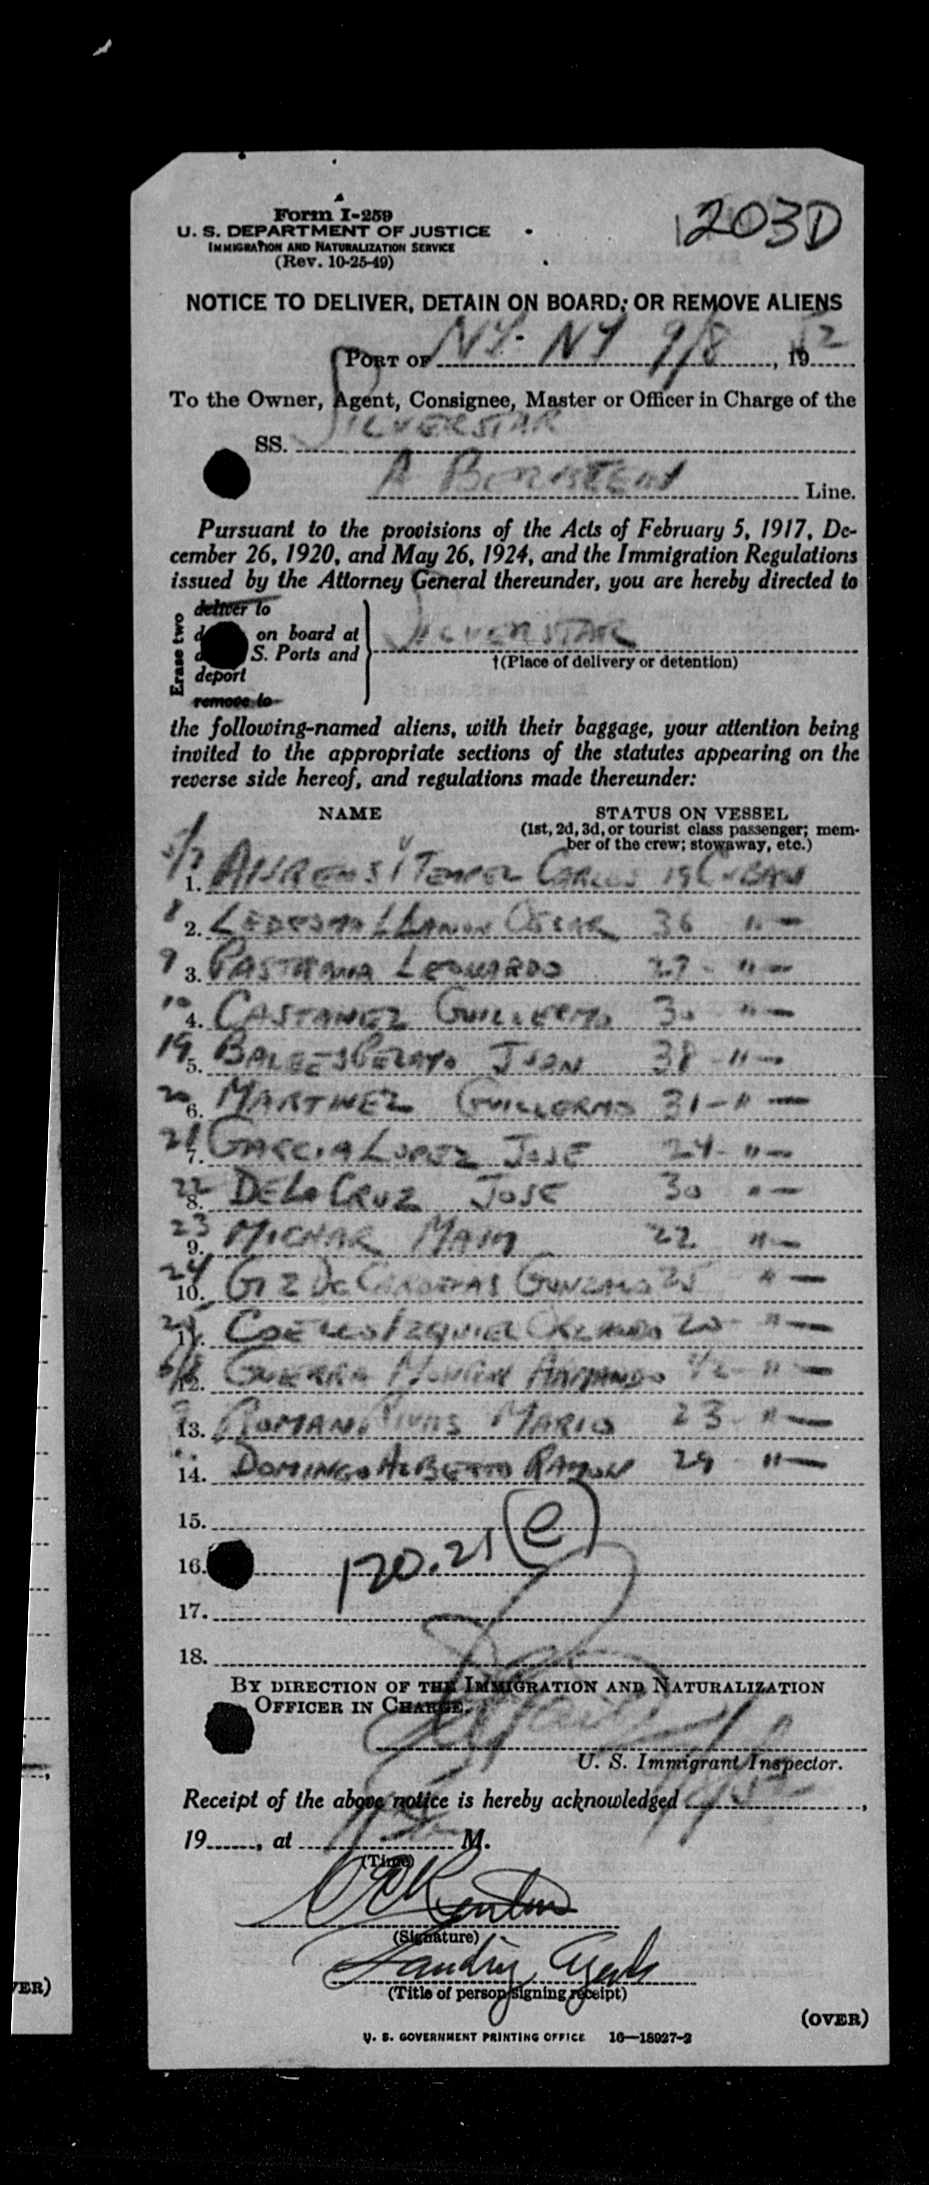 Form I-259
U. S. DEPARTMENT OF JUSTICE
IMMIGRATION AND NATURALIZATION SERVICE
(Rev. 10-25-49)
1203D
NOTICE TO DELIVER, DETAIN ON BOARD, OR REMOVE ALIENS
PORT OF NY. NY 9/8, 1952
To the Owner, Agent, Consignee, Master or Officer in Charge of the
SS. SILVERSTAR
A BERNSTEIN Line.
Pursuant to the provisions of the Acts of February 5, 1917, De-
cember 26, 1920, and May 26, 1924, and the Immigration Regulations
issued by the Attorney General thereunder, you are hereby directed to
Erase two
deliver to
on board at
S. Ports and
deport
remove to
SILVERSTAR
†(Place of delivery or detention)
the following-named aliens, with their baggage, your attention being
invited to the appropriate sections of the statutes appearing on the
reverse side hereof, and regulations made thereunder:
NAME STATUS ON VESSEL
(1st, 2d, 3d, or tourist class passenger; mem-
ber of the crew; stowaway, etc.)
5/7 1. AHRENS TEMPEL CARLOS 19 CUBAN
8 2. LEDESMA LLANON OSCAR 36 " —
9 3. PASTRANA LEONARDO 27 - " —
10 4. CASTANEZ GUILLERMO 30 " —
19 5. JUAN 38 - " —
20 6. MARTINEZ GUILLERMO 31 - " —
21 7. GARCIA LOPEZ JOSE 24 - " —
22 8. DE LA CRUZ JOSE 30 " —
23 9. 22 " —
24 10. DE CARDENAS GONZALO 25 " —
11. COELLO EZEQUIEL ORLANDO 20 - " —
12. GUERRA ARMANDO " —
13. ROMAN RIVAS MARIO 23 - " —
14. DOMINGO ALBERTO RAMON 29 - " —
15.
16. 120.21 (e)
17.
18.
BY DIRECTION OF THE IMMIGRATION AND NATURALIZATION
OFFICER IN CHARGE.
U. S. Immigrant Inspector.
Receipt of the above notice is hereby acknowledged
19, at M.
(Time)
(Signature)
Landing Agent
(Title of person signing receipt)
(OVER)
U. S. GOVERNMENT PRINTING OFFICE 16—18927-2
VER)